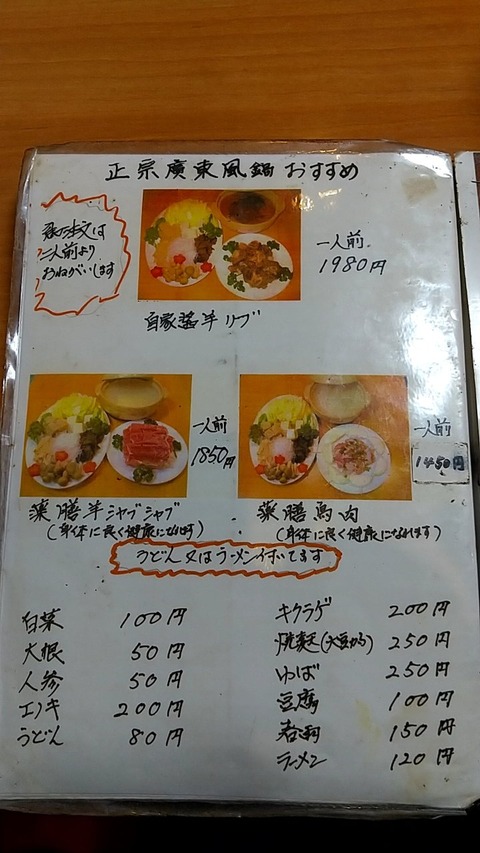 正宗廣東風鍋 おすすめ
ご注文は
二人前より
おねがいします
一人前
1980円
自家醤羊リブ
一人前
1850円
薬膳羊シャブシャブ
(身体に良く健康になれます)
一人前
1450円
薬膳馬肉
(身体に良く健康になれます)
うどん又はラーメン付いてます
白菜 100円
大根 50円
人参 50円
エノキ 200円
うどん 80円
キクラゲ 200円
焼麩(大豆から) 250円
ゆば 250円
豆腐 100円
春雨 150円
ラーメン 120円